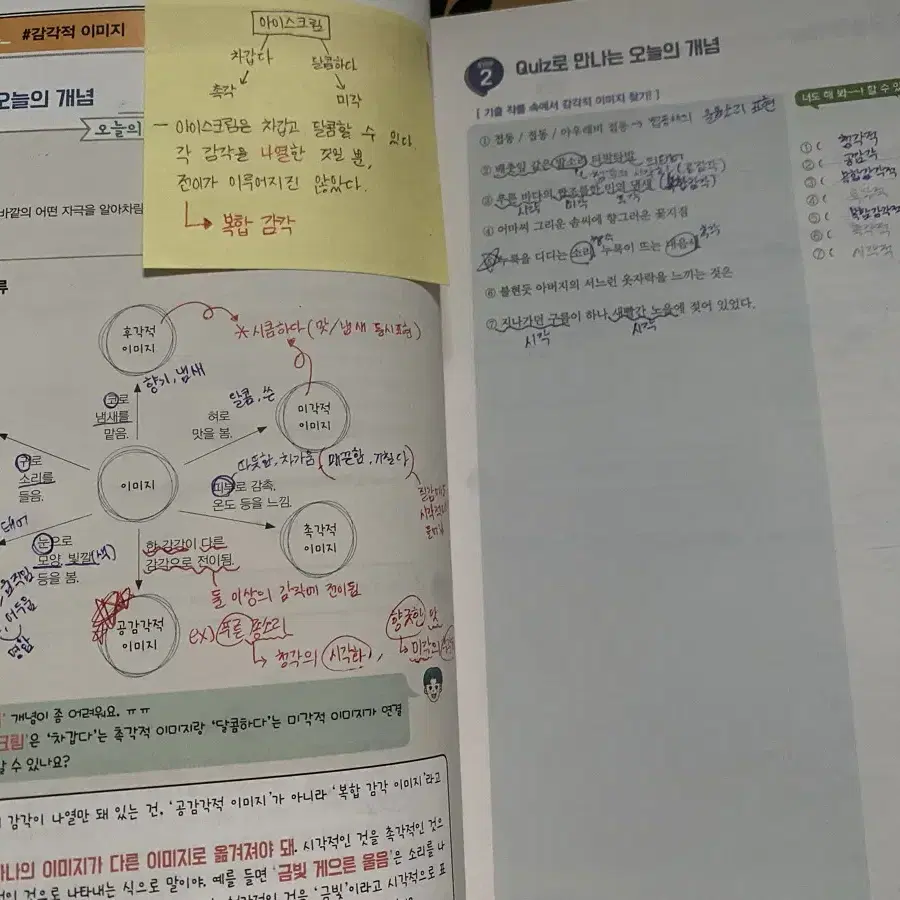 #감각적 이미지
오늘의 개념
오늘의
바깥의 어떤 자극을 알아차림
류
아이스크림
차갑다
달콤하다
촉각
미각
- 아이스크림은 차갑고 달콤할 수 있다.
각 감각을 나열한 것일 뿐,
전이가 이루어지진 않았다.
복합 감각
후각적
이미지
*시큼하다(맛/냄새 동시표현)
향기, 냄새
코로
냄새를
맡음.
달콤, 쓴
혀로
맛을 봄.
미각적
이미지
귀로
소리를
들음.
이미지
따뜻함, 차가움 (매끈함, 거칠다)
피부로 감촉.
온도 등을 느낌.
촉각적
이미지
눈으로
모양, 빛깔(색)
등을 봄.
어두움
명암
한 감각이 다른
감각으로 전이됨.
둘 이상의 감각에 전이됨
공감각적
이미지
ex) 푸른 종소리
청각의 시각화,
향긋한 맛
미각의
개념이 좀 어려워요. ㅠㅠ
크림'은 '차갑다'는 촉각적 이미지랑 '달콤하다'는 미각적 이미지가 연결
할 수 있나요?
감각이 나열만 돼 있는 건, '공감각적 이미지'가 아니라 '복합 감각 이미지'라고
하나의 이미지가 다른 이미지로 옮겨져야 돼. 시각적인 것을 촉각적인 것으
적인 것으로 나타내는 식으로 말이야. 예를 들면 '금빛 게으른 울음'은 소리를 나
'금빛'이라고 시각적으로 표
2
Quiz로 만나는 오늘의 개념
[ 기출 작품 속에서 감각적 이미지 찾기! ]
① 접동 / 접동 / 아우래비 접동 → 울음소리 표현
② 배춧잎 같은 발소리 타박타박
③ 푸른 바다의 짭조름한 미역 냄새 (복합감각)
시각 미각 후각
④ 어마씨 그리운 솜씨에 향그러운 꽃지짐
⑤ 누룩을 디디는 소리, 누룩이 뜨는 내음새
⑥ 불현듯 아버지의 서느런 옷자락을 느끼는 것은
⑦ 지나가던 구름이 하나, 새빨간 노을에 젖어 있었다.
시각 시각
너도 해 봐~! 할 수 있
① ( 청각적
② ( 공감각
③ ( 복합감각적
④ ( 후각적
⑤ ( 복합감각적
⑥ ( 촉각적
⑦ ( 시각적